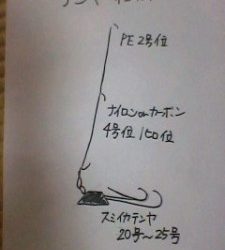 PE 2号位
ナイロンorカーボン
4号位 1ヒロ位
スミイカテンヤ
20号〜25号